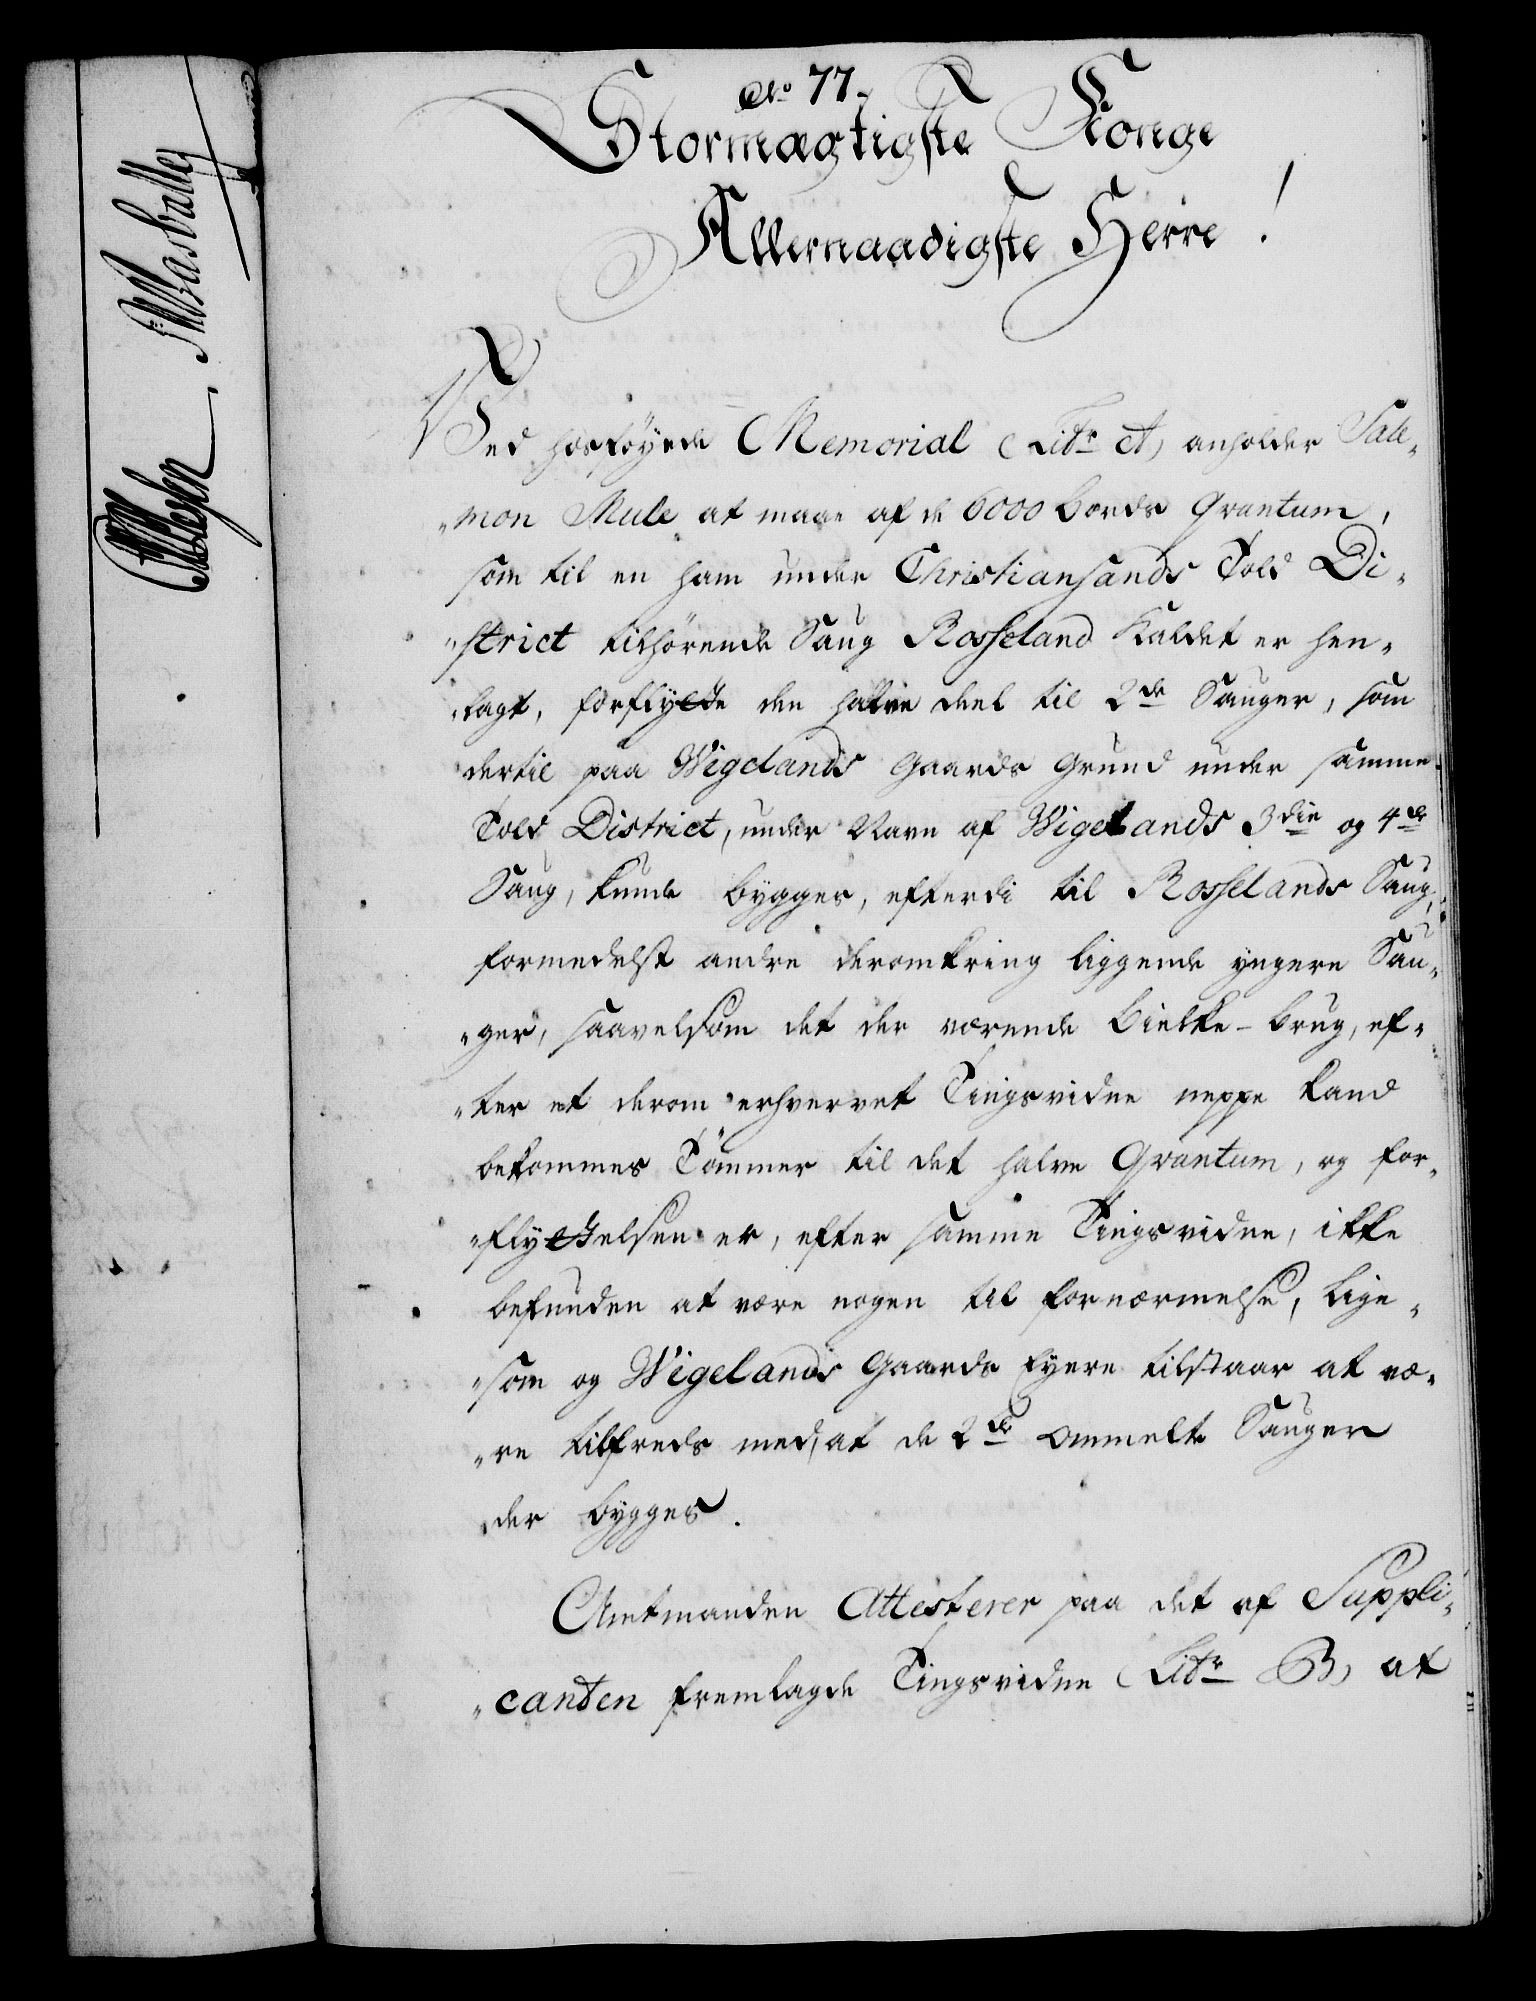 No 77.
Stormægtigste Konge
Allernaadigste Herre!
Ved hosføyede Memorial (Litr A) anholder Sale„
„mon Mule at maae af de 6000 Bords Qvantum,
som til en ham under Christiansands Told Di„
„strict tilhørende Saug Rosseland kaldet er hen„
„lagt, forflytte den halve deel til 2de Sauger, som
dertil paa Wigelands Gaards Grund under samme
Told District, under Navn af Wigelands 3die og 4de
Saug, kunde bygges, efterdi til Rosselands Saug,
formedelst andre deromkring liggende yngere Sau„
„ger, saavelsom det der værende Bielke-Brug, ef„
„ter et derom erhvervet Tingsvidne neppe kand
bekommes Tømmer til det halve Qvantum, og for„
„flyttelsen er, efter samme Tingsvidne, ikke
befunden at være nogen til fornærmelse, lige„
„som og Wigelands Gaards Eyere tilstaar at væ„
„re tilfreds med, at de 2de ommelte Sauger
der bygges.
Amtmanden Attesterer paa det af Suppli„
„canten fremlagde Tingsvidne (Litr B) at